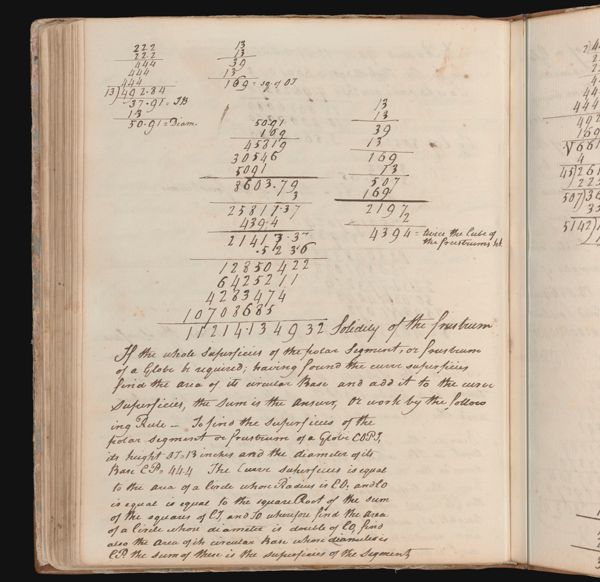 222
222
444
444
444
13)492.84
37.91 = IB
13
50.91 = Diam.
13
13
39
13
169 = sq. of OI
50.91
169
45819
30546
5091
8603.79
3
25811.37
4394
21417.37
.5236
12850422
6425211
4283474
10708685
11214.134932 Solidity of the frustrum
13
13
39
13
169
13
507
169
2197
2
4394 = twice the Cube of
the frustrums ht
If the whole Superficies of the polar Segment, or frustrum
of a Globe be required; having found the curve superficies
find the area of its circular Base and add it to the curve
Superficies, the sum is the answer, Or work by the follow
ing Rule — To find the superficies of the
polar segment or frustrum of a Globe COPI,
its height OI = 13 inches and the diameter of its
Base CP = 44.4 The Curve superficies is equal
to the area of a Circle whose Radius is CO; and CO
is equal is equal to the square Root of the sum
of the squares of CI, and IO wherefore find the Area
of a Circle whose diameter is double of CO, find
also the Area of its circular Base whose diameter is
CP. the sum of these is the superficies of the Segment
45)261
507)36
5142)